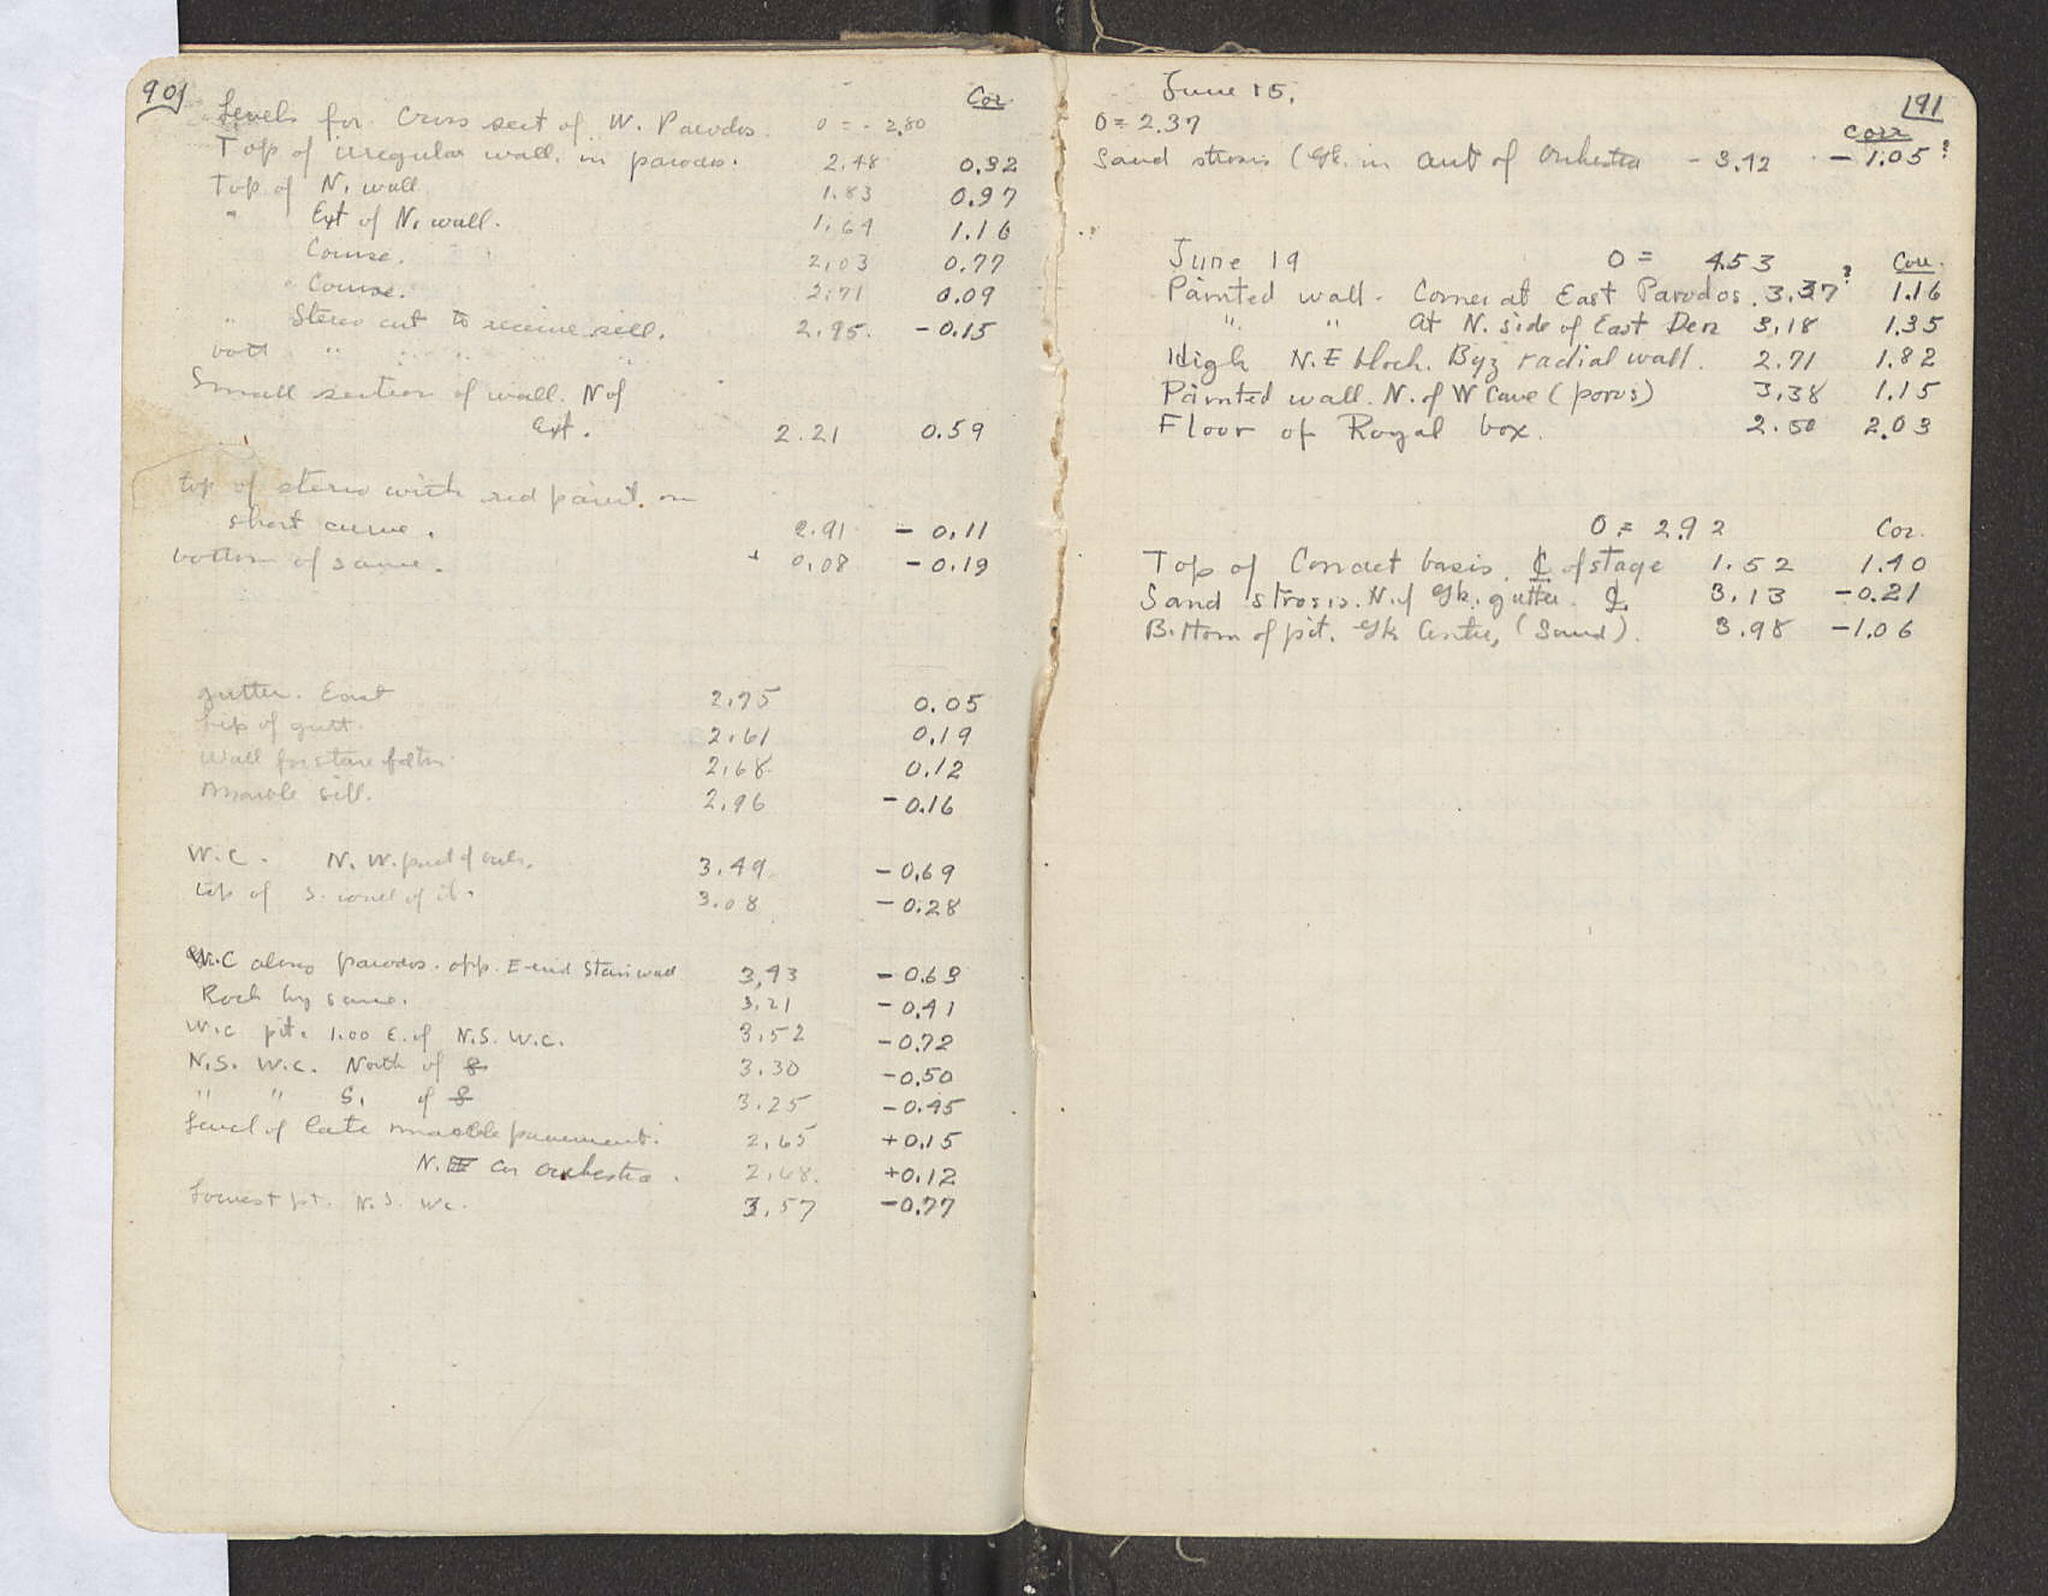 90
Levels for Cross sect of W. Parodos. 0 = - 2.80 Cor.
Top of irregular wall in parodos. 2.48 0.32
Top of N. wall 1.83 0.97
" Ext of N. wall. 1.64 1.16
Course. 2.03 0.77
" Course. 2.71 0.09
" Stereo cut to receive sill. 2.95. - 0.15
bott " " " " "
Small section of wall. N of
Ext. 2.21 0.59
top of stereo with red paint. on
short curve. 2.91 - 0.11
bottom of same. + 0.08 - 0.19
gutter. East 2.75 0.05
Lip of gutt. 2.61 0.19
Wall for 2.68. 0.12
Marble sill. 2.96 - 0.16
W.C. N.W. part of 3.49 - 0.69
top of S. of it. 3.08 - 0.28
W.C along parodos. opp. E end Stairwall 3.43 - 0.63
Rock by same. 3.21 - 0.41
W.C pit. 1.00 E. of N.S. W.C. 3.52 - 0.72
N.S. W.C. North of 8 3.30 - 0.50
" " S. of 8 3.25 - 0.45
Level of late marble pavement. 2.65 + 0.15
N. Cor Orchestra. 2.68. + 0.12
Lowest pt. N.S. W.C. 3.57 - 0.77
91
June 15.
0 = 2.37 Corr
Sand strosis (Gk. in cut of Orchestra - 3.42 - 1.05 ?
June 19 0 = 4.53 Corr.
Painted wall. Corner at East Parodos. 3.37 ? 1.16
" " At N. side of East Den 3.18 1.35
High N.E block. Byz radial wall. 2.71 1.82
Painted wall. N. of W Cave (poros) 3.38 1.15
Floor of Royal box. 2.50 2.03
0 = 2.92 Cor.
Top of basis. ℄ of stage 1.52 1.40
Sand strosis. N. of Gk. gutter. ℄ 3.13 - 0.21
Bottom of pit. Gk Centre, (Sand). 3.98 - 1.06